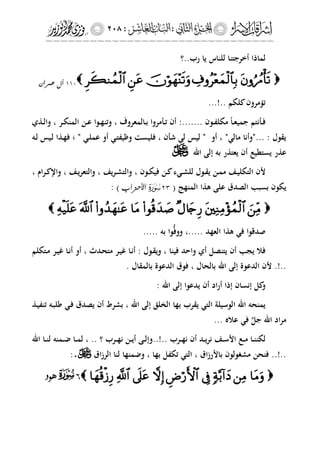 إشراقات قرآنية المجلد الثاني : الباب العاشر : ٢٠٨
لماذا أخرجتنا للناس يا رب..؟
﴿ تَأْمُرُونَ بِٱلْمَعْرُوفِ وَتَنْهَوْنَ عَنِ ٱلْمُنكَرِ ﴾ ١١٠ آل عمران
تؤمرون كلكم ...!...
فأنتم جميعاً مكلفون .......: أن تأمروا بالمعروف ، وتنهوا عن المنكر ، والذي
يقول : ..."وأنا مالي" ، أو " ليس لي شأن ، فليست وظيفتي أو عملي " ؛ فهذا ليس له
عذر يستطيع أن يعتذر به إلى الله
لأن التكليف ممن يقول للشيء كن فيكون ، والتشريف ، والتعريف ، والإكرام ،
يكون بسبب الصدق على هذا المنهج ( ٢٣ سورة الأحزاب )
﴿ مِّنَ ٱلْمُؤْمِنِينَ رِجَالٌ صَدَقُوا۟ مَا عَٰهَدُوا۟ ٱللَّهَ عَلَيْهِ ﴾
صدقوا في هذا العهد .....، ووفّوا به .....
فلا يجب أن يتنصل أي واحد فينا ، ويقول : أنا غير متحدث ، أو أنا غير متكلم
..!. لأن الدعوة إلى الله بالحال ، فوق الدعوة بالمقال .
وكل إنسان إذا أراد أن يدعوا إلى الله :
يمنحه الله الوسيلة التي يقرب بها الخلق إلى الله ، بشرط أن يصدق في طلبه تنفيذ
مراد الله جلّ في علاه ...
لكننا مع الأسف نريد أن نهرب ..!..وإلى أين نهرب ؟ .. ، لما ضمنه لنا الله
..!.. فنحن مشغولون بالأرزاق ، التي تكفل بها ، وضمنها لنا الرزاق :
﴿ وَمَا مِن دَآبَّةٍ فِى ٱلْأَرْضِ إِلَّا عَلَى ٱللَّهِ رِزْقُهَا ﴾ ٦ سورة هود